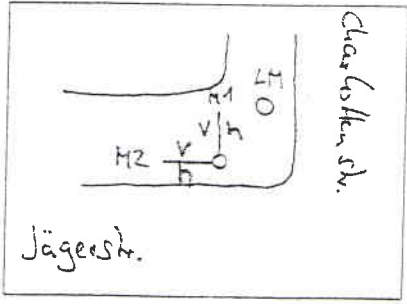 Charlottenstr.
LM
M1
V h
M2 V
h
Jägerstr.